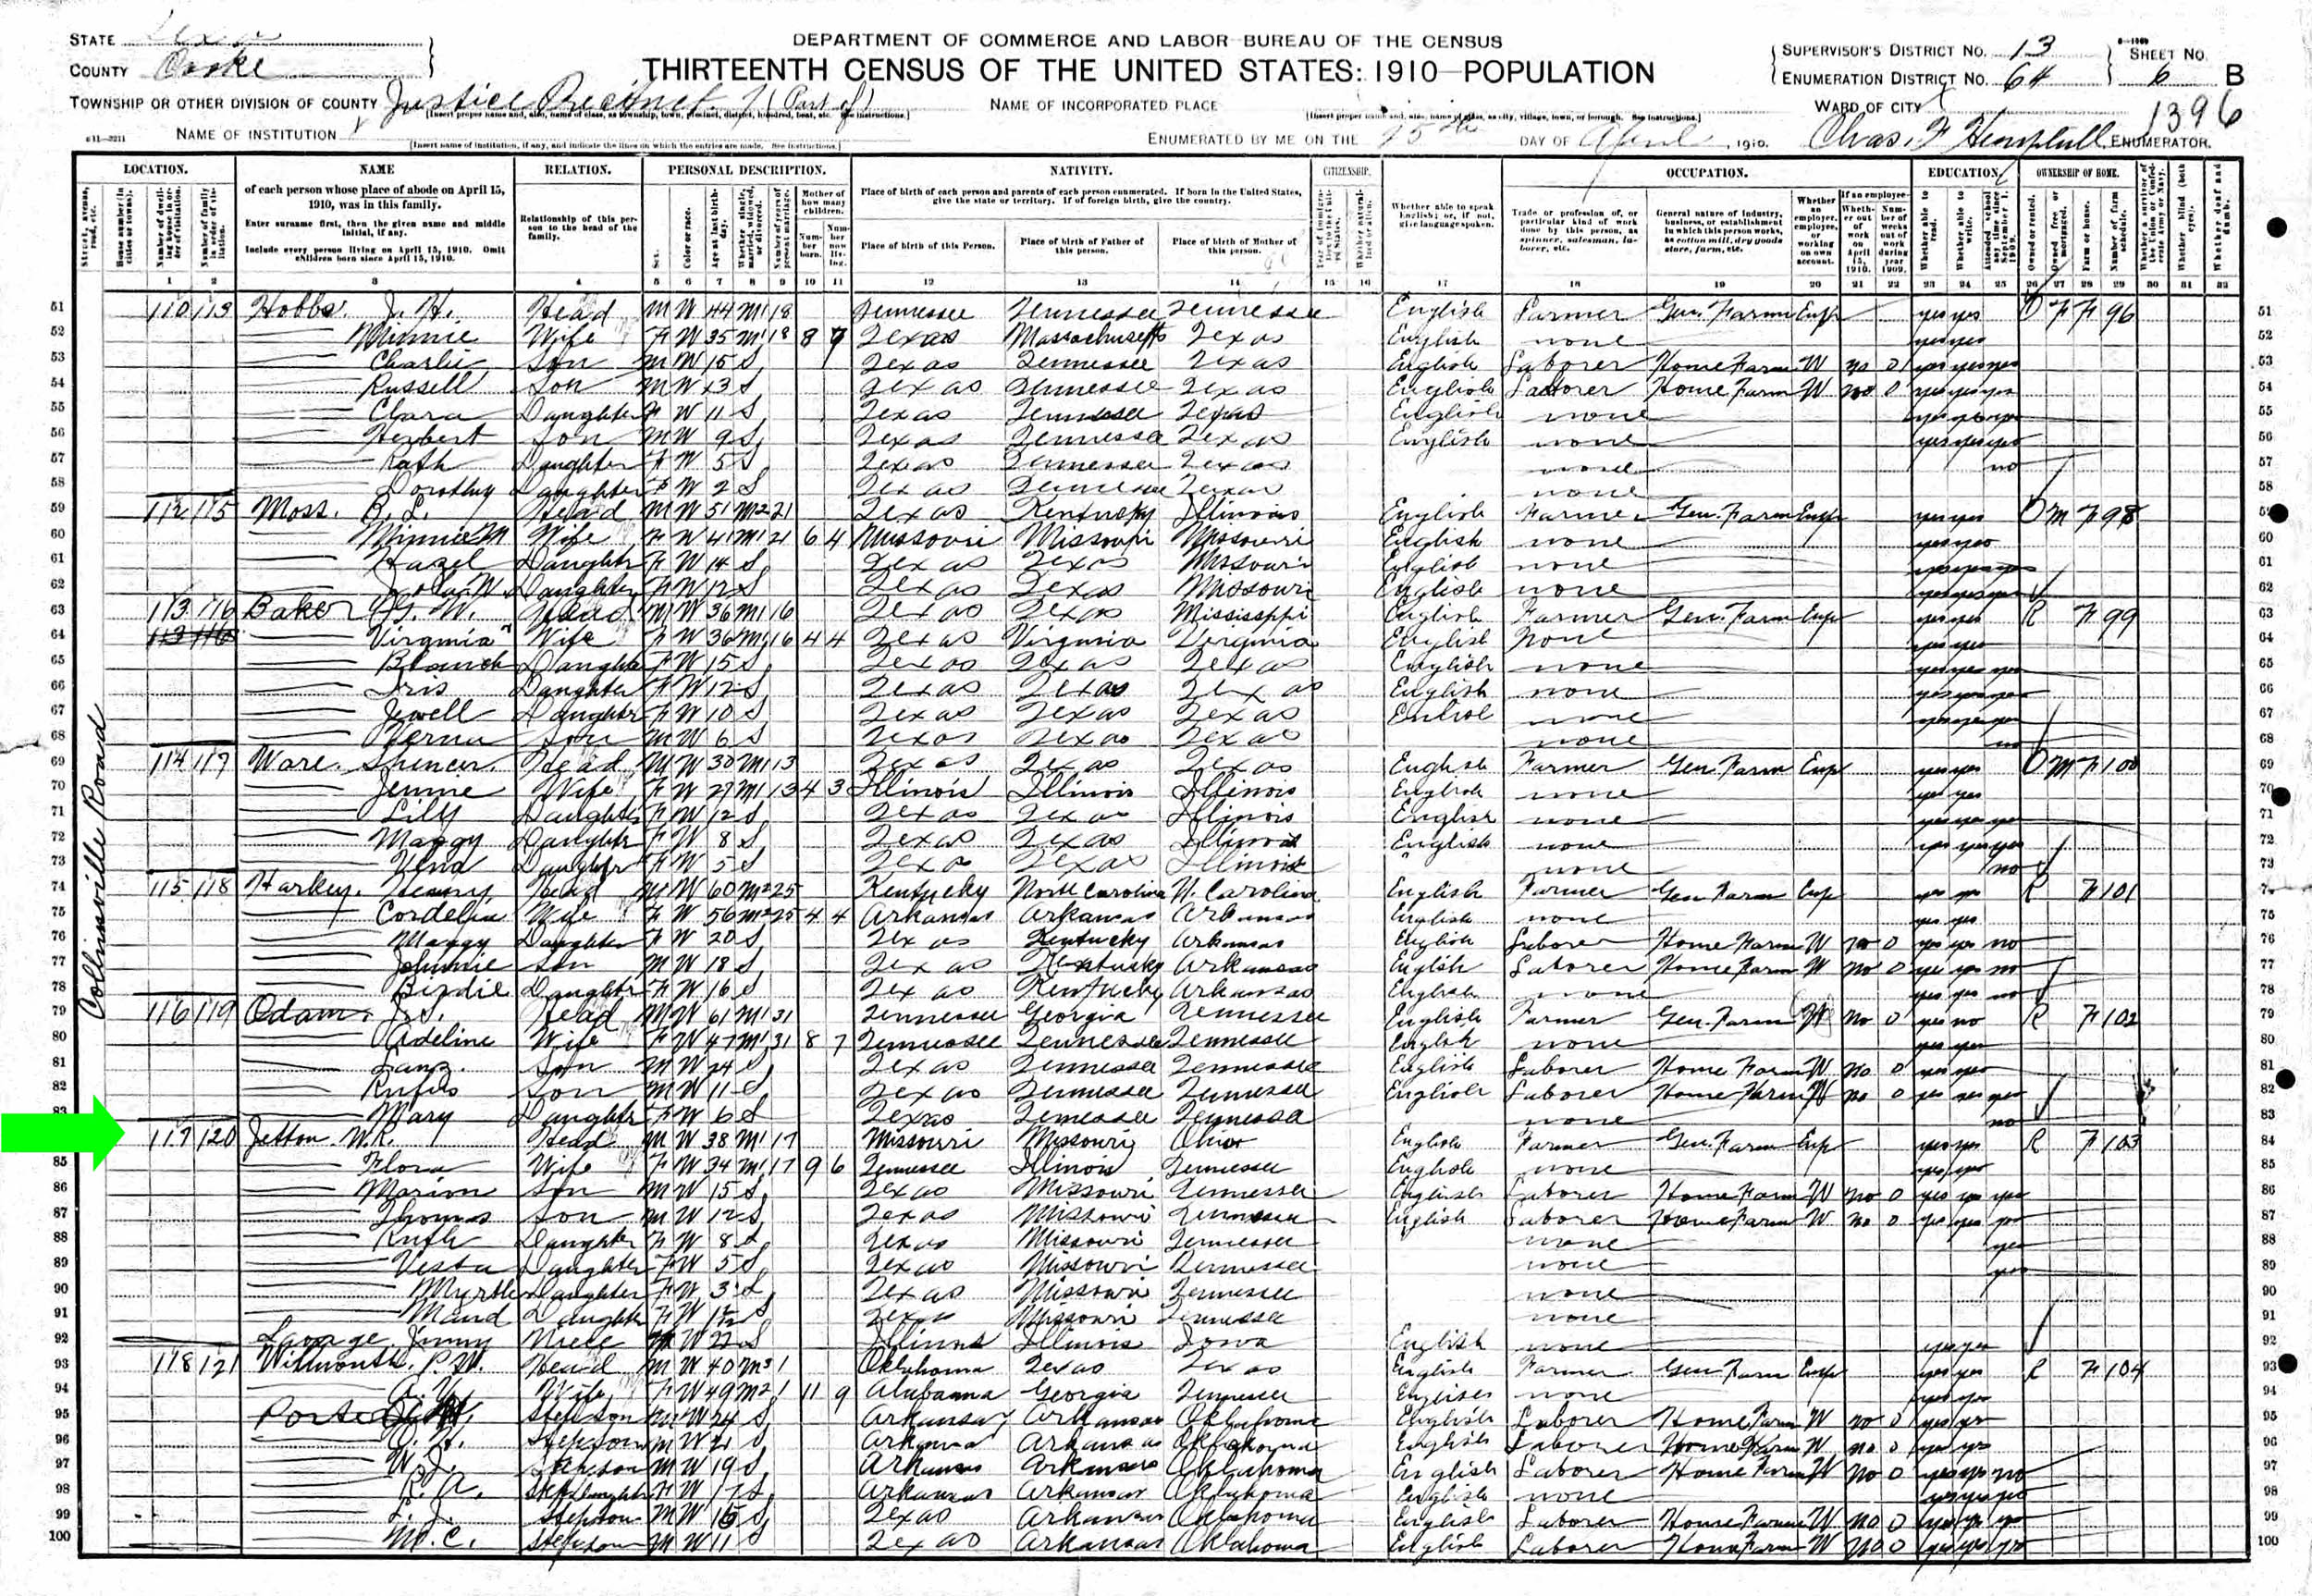 STATE Texas
COUNTY Cooke
DEPARTMENT OF COMMERCE AND LABOR-BUREAU OF THE CENSUS
THIRTEENTH CENSUS OF THE UNITED STATES: 1910-POPULATION
SUPERVISOR'S DISTRICT NO. 13
ENUMERATION DISTRICT NO. 64
SHEET NO. 6 B
TOWNSHIP OR OTHER DIVISION OF COUNTY Justice Precinct 7 (Part of)
NAME OF INCORPORATED PLACE
WARD OF CITY
1396
NAME OF INSTITUTION X
ENUMERATED BY ME ON THE 25th DAY OF April, 1910. Chas. F Hemphill, ENUMERATOR.
LOCATION. NAME RELATION. PERSONAL DESCRIPTION. NATIVITY. CITIZENSHIP. OCCUPATION. EDUCATION. OWNERSHIP OF HOME.
of each person whose place of abode on April 15, 1910, was in this family.
Enter surname first, then the given name and middle initial, if any.
Include every person living on April 15, 1910. Omit children born since April 15, 1910.
Relationship of this person to the head of the family.
Place of birth of each person and parents of each person enumerated. If born in the United States, give the state or territory. If of foreign birth, give the country.
Place of birth of this Person. Place of birth of Father of this person. Place of birth of Mother of this person.
Whether able to speak English; or, if not, give language spoken.
Trade or profession of, or particular kind of work done by this person, as spinner, salesman, laborer, etc.
General nature of industry, business, or establishment in which this person works, as cotton mill, dry goods store, farm, etc.
Collinsville Road
51 110 113 Hobbs J. H. Head M W 44 M1 18 Tennessee Tennessee Tennessee English Farmer Gen. Farm Emp yes yes O F F 96
52 Minnie Wife F W 35 M1 18 8 7 Texas Massachusetts Texas English none yes yes
53 Charlie Son M W 15 S Texas Tennessee Texas English Laborer Home Farm W no 0 yes yes yes
54 Russell Son M W 13 S Texas Tennessee Texas English Laborer Home Farm W no 0 yes yes yes
55 Clara Daughter F W 11 S Texas Tennessee Texas English none yes yes yes
56 Herbert Son M W 9 S Texas Tennessee Texas English none yes yes yes
57 Ruth Daughter F W 5 S Texas Tennessee Texas none no
58 Dorothy Daughter F W 2 S Texas Tennessee Texas none
59 112 115 Moss. Head M W 51 M2 21 Texas Kentucky Illinois English Farmer Gen. Farm Emp yes yes O M F 98
60 Minnie M Wife F W 41 M1 21 6 4 Missouri Missouri Missouri English none yes yes
61 Hazel Daughter F W 14 S Texas Texas Missouri English none yes yes yes
62 Daughter F W 12 S Texas Texas Missouri English none yes yes yes
63 113 116 Baker G. W. Head M W 36 M1 16 Texas Texas Mississippi English Farmer Gen. Farm Emp yes yes R F 99
64 113 116 Virginia Wife F W 36 M1 16 4 4 Texas Virginia Virginia English None yes yes
65 Blanch Daughter F W 15 S Texas Texas Texas English none yes yes yes
66 Iris Daughter F W 12 S Texas Texas Texas English none yes yes yes
67 Jewell Daughter F W 10 S Texas Texas Texas English none yes yes yes
68 Son M W 6 S Texas Texas Texas none no
69 114 117 Ware. Spencer. Head M W 30 M1 13 Texas Texas Texas English Farmer Gen Farm Emp yes yes O M F 100
70 Jennie Wife F W 27 M1 13 4 3 Illinois Illinois Illinois English none yes yes
71 Lilly Daughter F W 12 S Texas Texas Illinois English none yes yes yes
72 Maggy Daughter F W 8 S Texas Texas Illinois English none yes yes yes
73 Daughter F W 5 S Texas Texas Illinois none no
74 115 118 Harkey. Henry Head M W 60 M2 25 Kentucky North Carolina N. Carolina English Farmer Gen Farm Emp yes yes R F 101
75 Cordelia Wife F W 56 M2 25 4 4 Arkansas Arkansas Arkansas English none yes yes
76 Maggy Daughter F W 20 S Texas Kentucky Arkansas English Laborer Home Farm W no 0 yes yes no
77 Johnnie Son M W 18 S Texas Kentucky Arkansas English Laborer Home Farm W no 0 yes yes no
78 Birdie Daughter F W 16 S Texas Kentucky Arkansas English none yes yes no
79 116 119 Odam. J. S. Head M W 61 M1 31 Tennessee Georgia Tennessee English Farmer Gen. Farm W no 0 yes no R F 102
80 Adeline Wife F W 47 M1 31 8 7 Tennessee Tennessee Tennessee English none yes yes
81 Son M W 24 S Texas Tennessee Tennessee English Laborer Home Farm W no 0 yes yes
82 Rufus Son M W 11 S Texas Tennessee Tennessee English Laborer Home Farm W no 0 yes yes yes
83 Mary Daughter F W 6 S Texas Tennessee Tennessee none no
84 117 120 Jetton W. R. Head M W 38 M1 17 Missouri Missouri Ohio English Farmer Gen. Farm Emp yes yes R F 103
85 Flora Wife F W 34 M1 17 9 6 Tennessee Illinois Tennessee English none yes yes
86 Marion Son M W 15 S Texas Missouri Tennessee English Laborer Home Farm W no 0 yes yes yes
87 Thomas Son M W 12 S Texas Missouri Tennessee English Laborer Home Farm W no 0 yes yes yes
88 Ruth Daughter F W 8 S Texas Missouri Tennessee none yes
89 Vesta Daughter F W 5 S Texas Missouri Tennessee none yes
90 Myrtle Daughter F W 3 S Texas Missouri Tennessee none
91 Maud Daughter F W S Texas Missouri Tennessee none
92 Jinny Niece W 22 S Illinois Illinois Iowa English none yes yes
93 118 121 Willmouth. P. W. Head M W 40 M3 1 Oklahoma Texas Texas English Farmer Gen. Farm Emp yes yes R F 104
94 Wife F W 49 M2 1 11 9 Alabama Georgia Tennessee English none yes yes
95 Porter Stepson M W 24 S Arkansas Arkansas Oklahoma English Laborer Home Farm W no 0 yes yes
96 Stepson M W 21 S Arkansas Arkansas Oklahoma English Laborer Home Farm W no 0 yes yes
97 W. J. Stepson M W 19 S Arkansas Arkansas Oklahoma English Laborer Home Farm W no 0 yes yes no
98 R. A. Stepdaughter F W 17 S Arkansas Arkansas Oklahoma English none yes yes yes
99 Stepson M W 15 S Texas Arkansas Oklahoma English Laborer Home Farm W no 0 yes yes yes
100 M. C. Stepson M W 11 S Texas Arkansas Oklahoma English Laborer Home Farm W no 0 yes yes yes